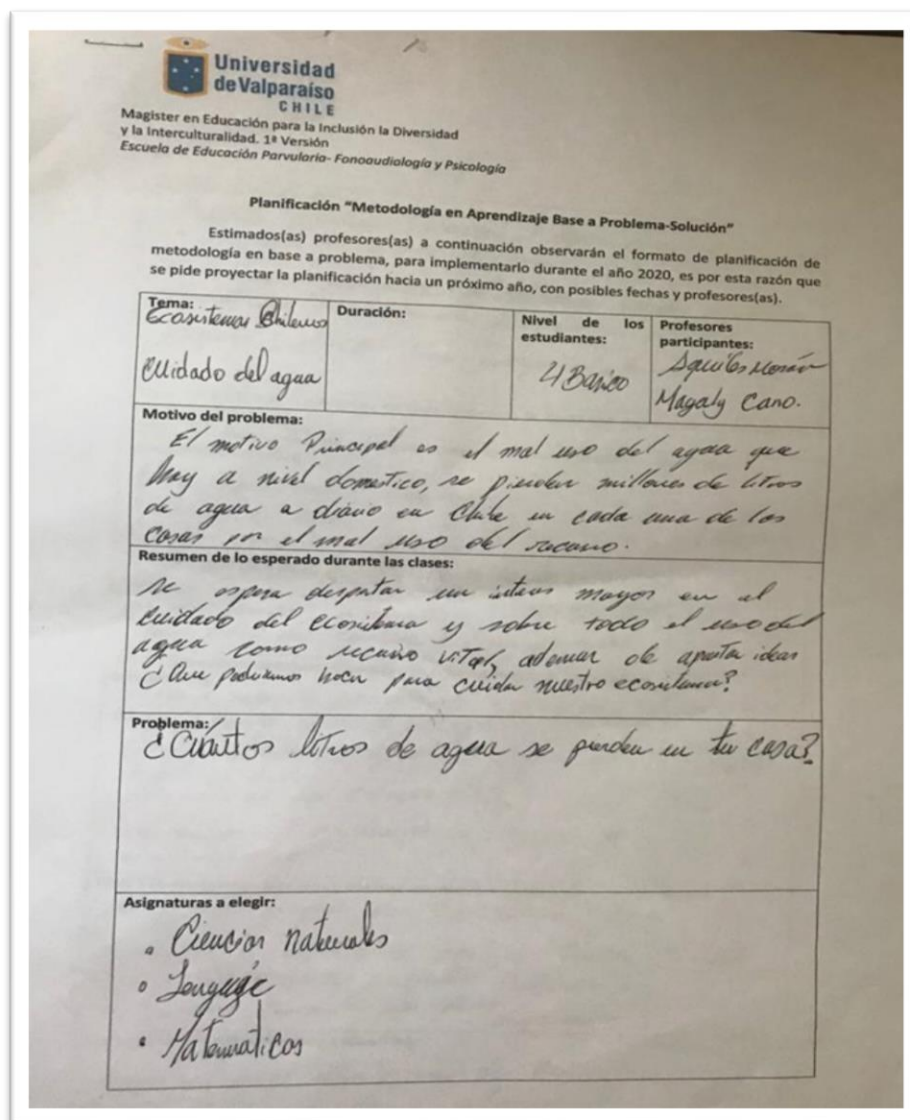 Universidad
de Valparaíso
CHILE
Magister en Educación para la Inclusión la Diversidad
y la Interculturalidad. 1ª Versión
Escuela de Educación Parvularia- Fonoaudiología y Psicología
Planificación “Metodología en Aprendizaje Base a Problema-Solución”
Estimados(as) profesores(as) a continuación observarán el formato de planificación de
metodología en base a problema, para implementarlo durante el año 2020, es por esta razón que
se pide proyectar la planificación hacia un próximo año, con posibles fechas y profesores(as).
Tema:
Ecosistemas Chilenos
Cuidado del agua
Duración:
Nivel de los
estudiantes:
4 Basico
Profesores
participantes:
Aquiles Morán
Magaly Cano.
Motivo del problema:
El motivo Principal es el mal uso del agua que
hay a nivel domestico, se pierden millones de litros
de agua a diario en Chile en cada una de las
casas por el mal uso del recurso.
Resumen de lo esperado durante las clases:
se espera despertar un interes mayor en el
cuidado del ecosistema y sobre todo el uso del
agua como recurso vital, ademas de aportar ideas
¿Que podriamos hacer para cuidar nuestro ecosistema?
Problema:
¿Cuántos litros de agua se pierden en tu casa?
Asignaturas a elegir:
• Ciencias naturales
• Lenguaje
• Matematicas